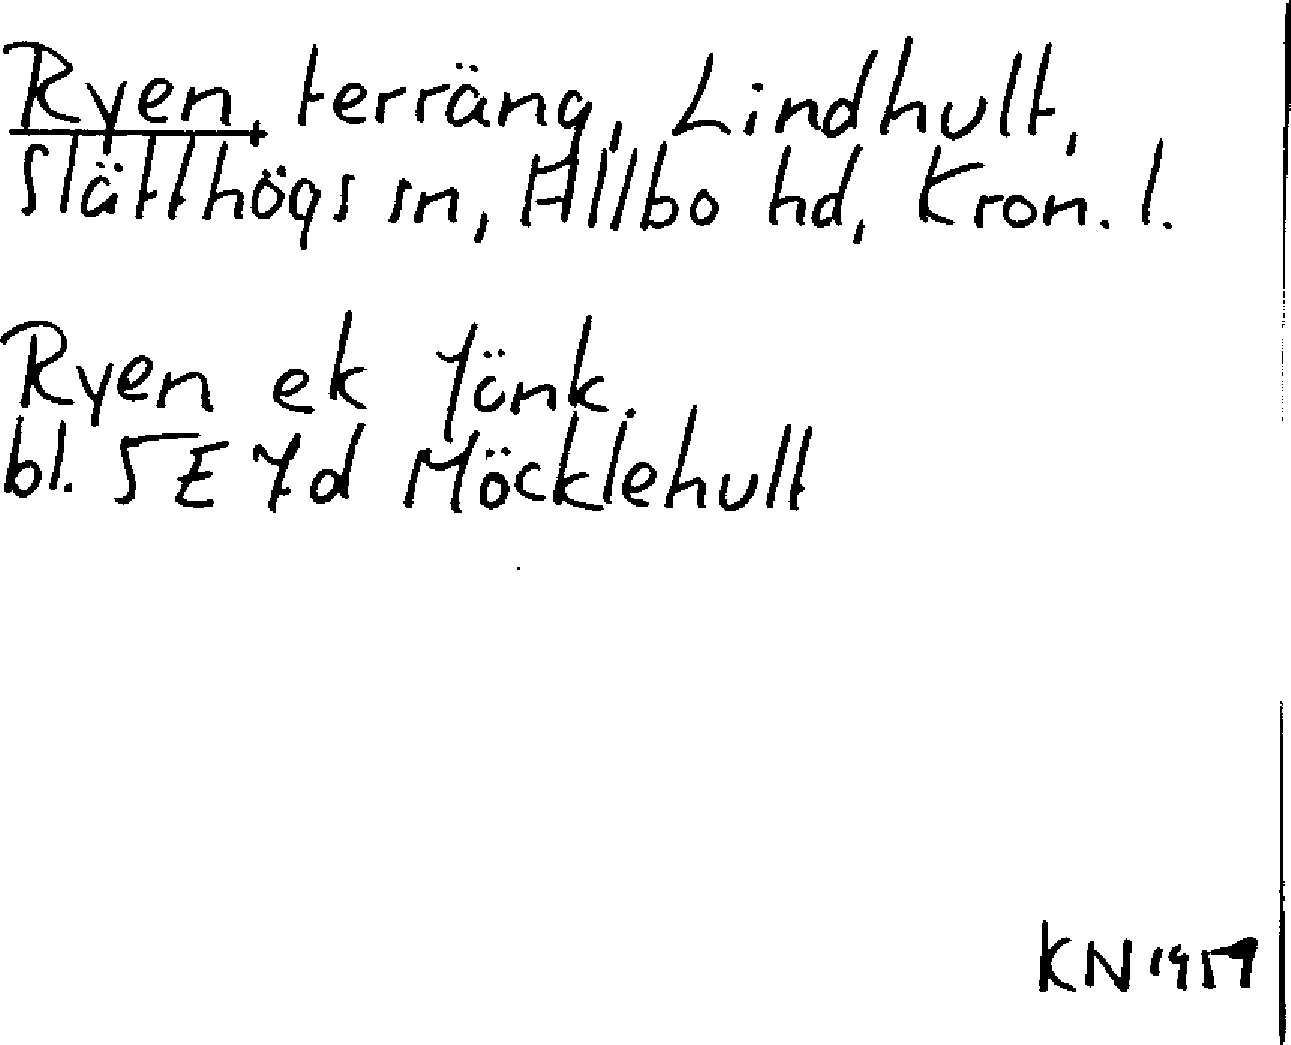 Ryen, terräng, Lindhult,
Slätthögs sn, Allbo hd, Kron. l.
Ryen ek Jönk.
bl. 5E 7d Möcklehult
KN 1957